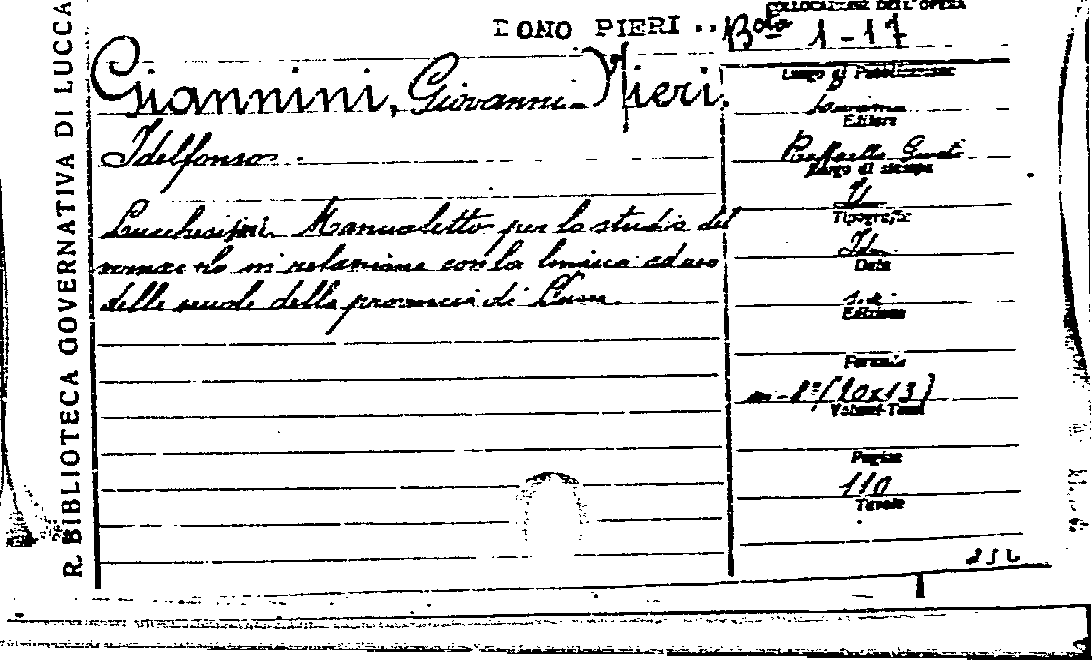 R. BIBLIOTECA GOVERNATIVA DI LUCCA
DONO PIERI ..
COLLOCAZIONE DELL'OPERA
Bta 1-17
Giannini, Giovanni - Nieri,
Idelfonso.
Lucchesismi. Manualetto per lo studio del
in relazione con la lingua ad uso
delle scuole della provincia di
Luogo di Pubblicazione
Livorno
Editore
Raffaello Giusti
Luogo di stampa
Tipografia
Data
Edizione
Formato
in-8° (20x13)
Volumi-Tomi
Pagine
110
Tavole